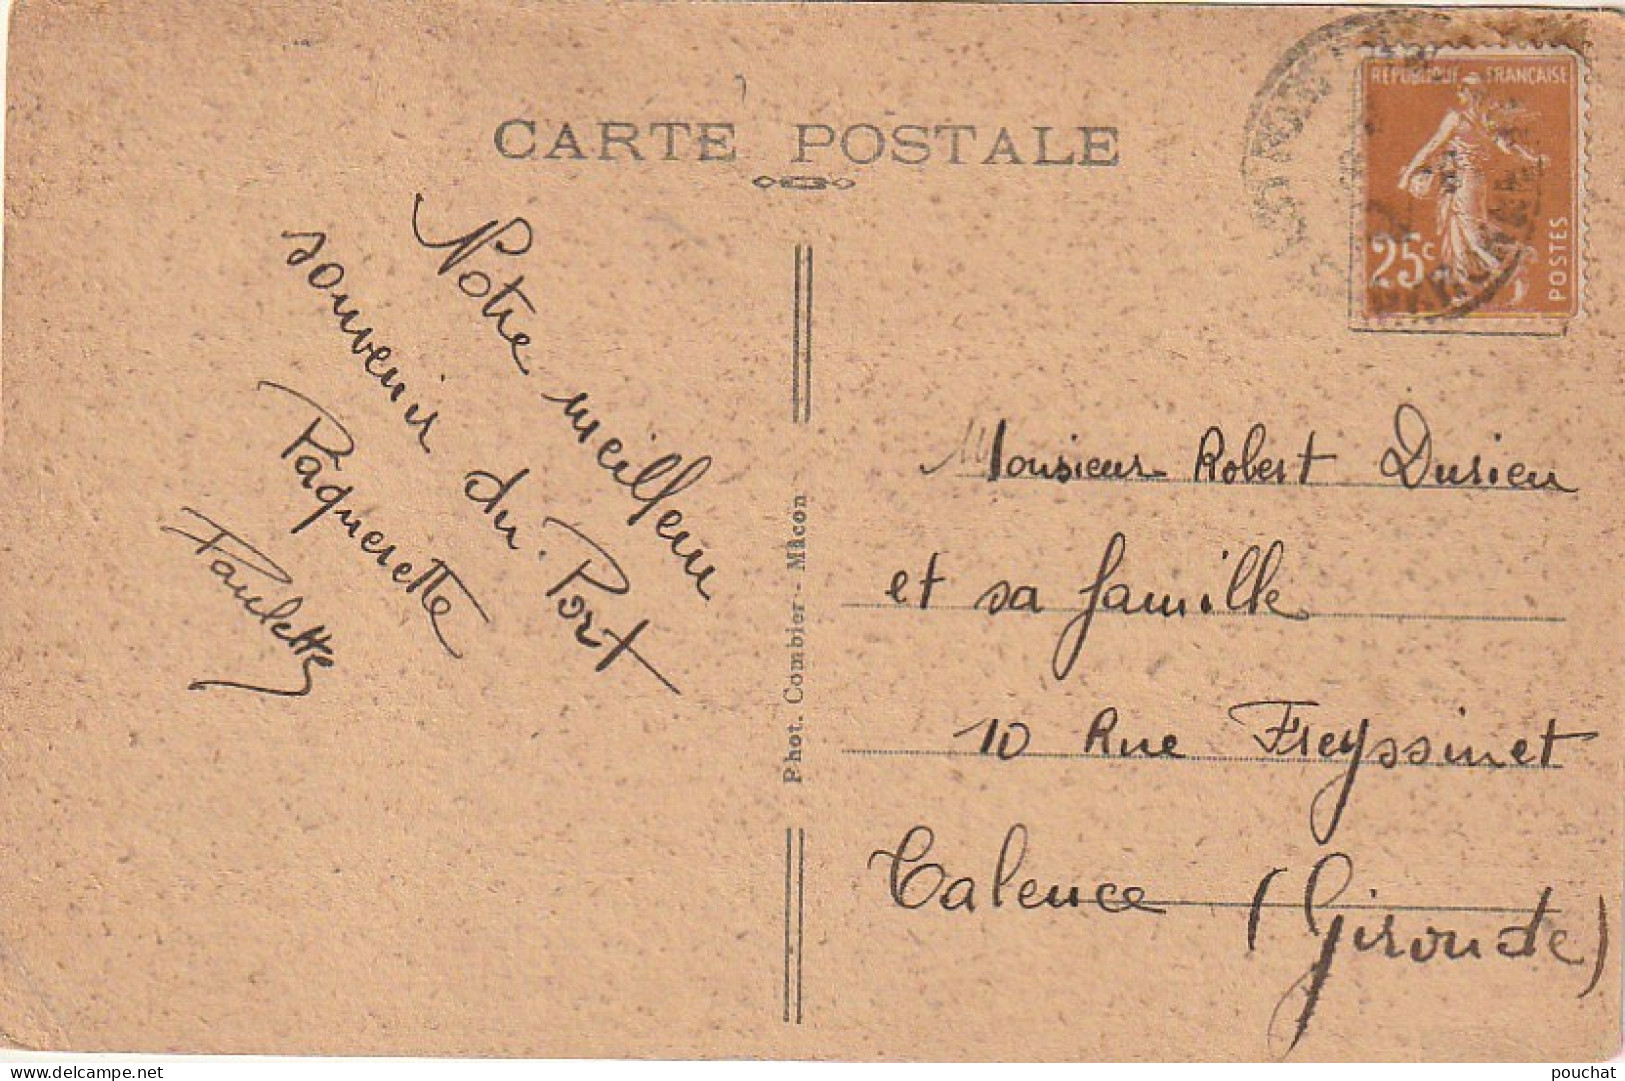 CARTE POSTALE
REPUBLIQUE FRANCAISE
25c
POSTES
Notre meilleur
souvenir du Port
Paquerette
Paulette
Phot. Combier - Mâcon
Monsieur Robert Durieu
et sa famille
10 Rue Freyssinet
Talence (Gironde)
delcampe.net
pouchat